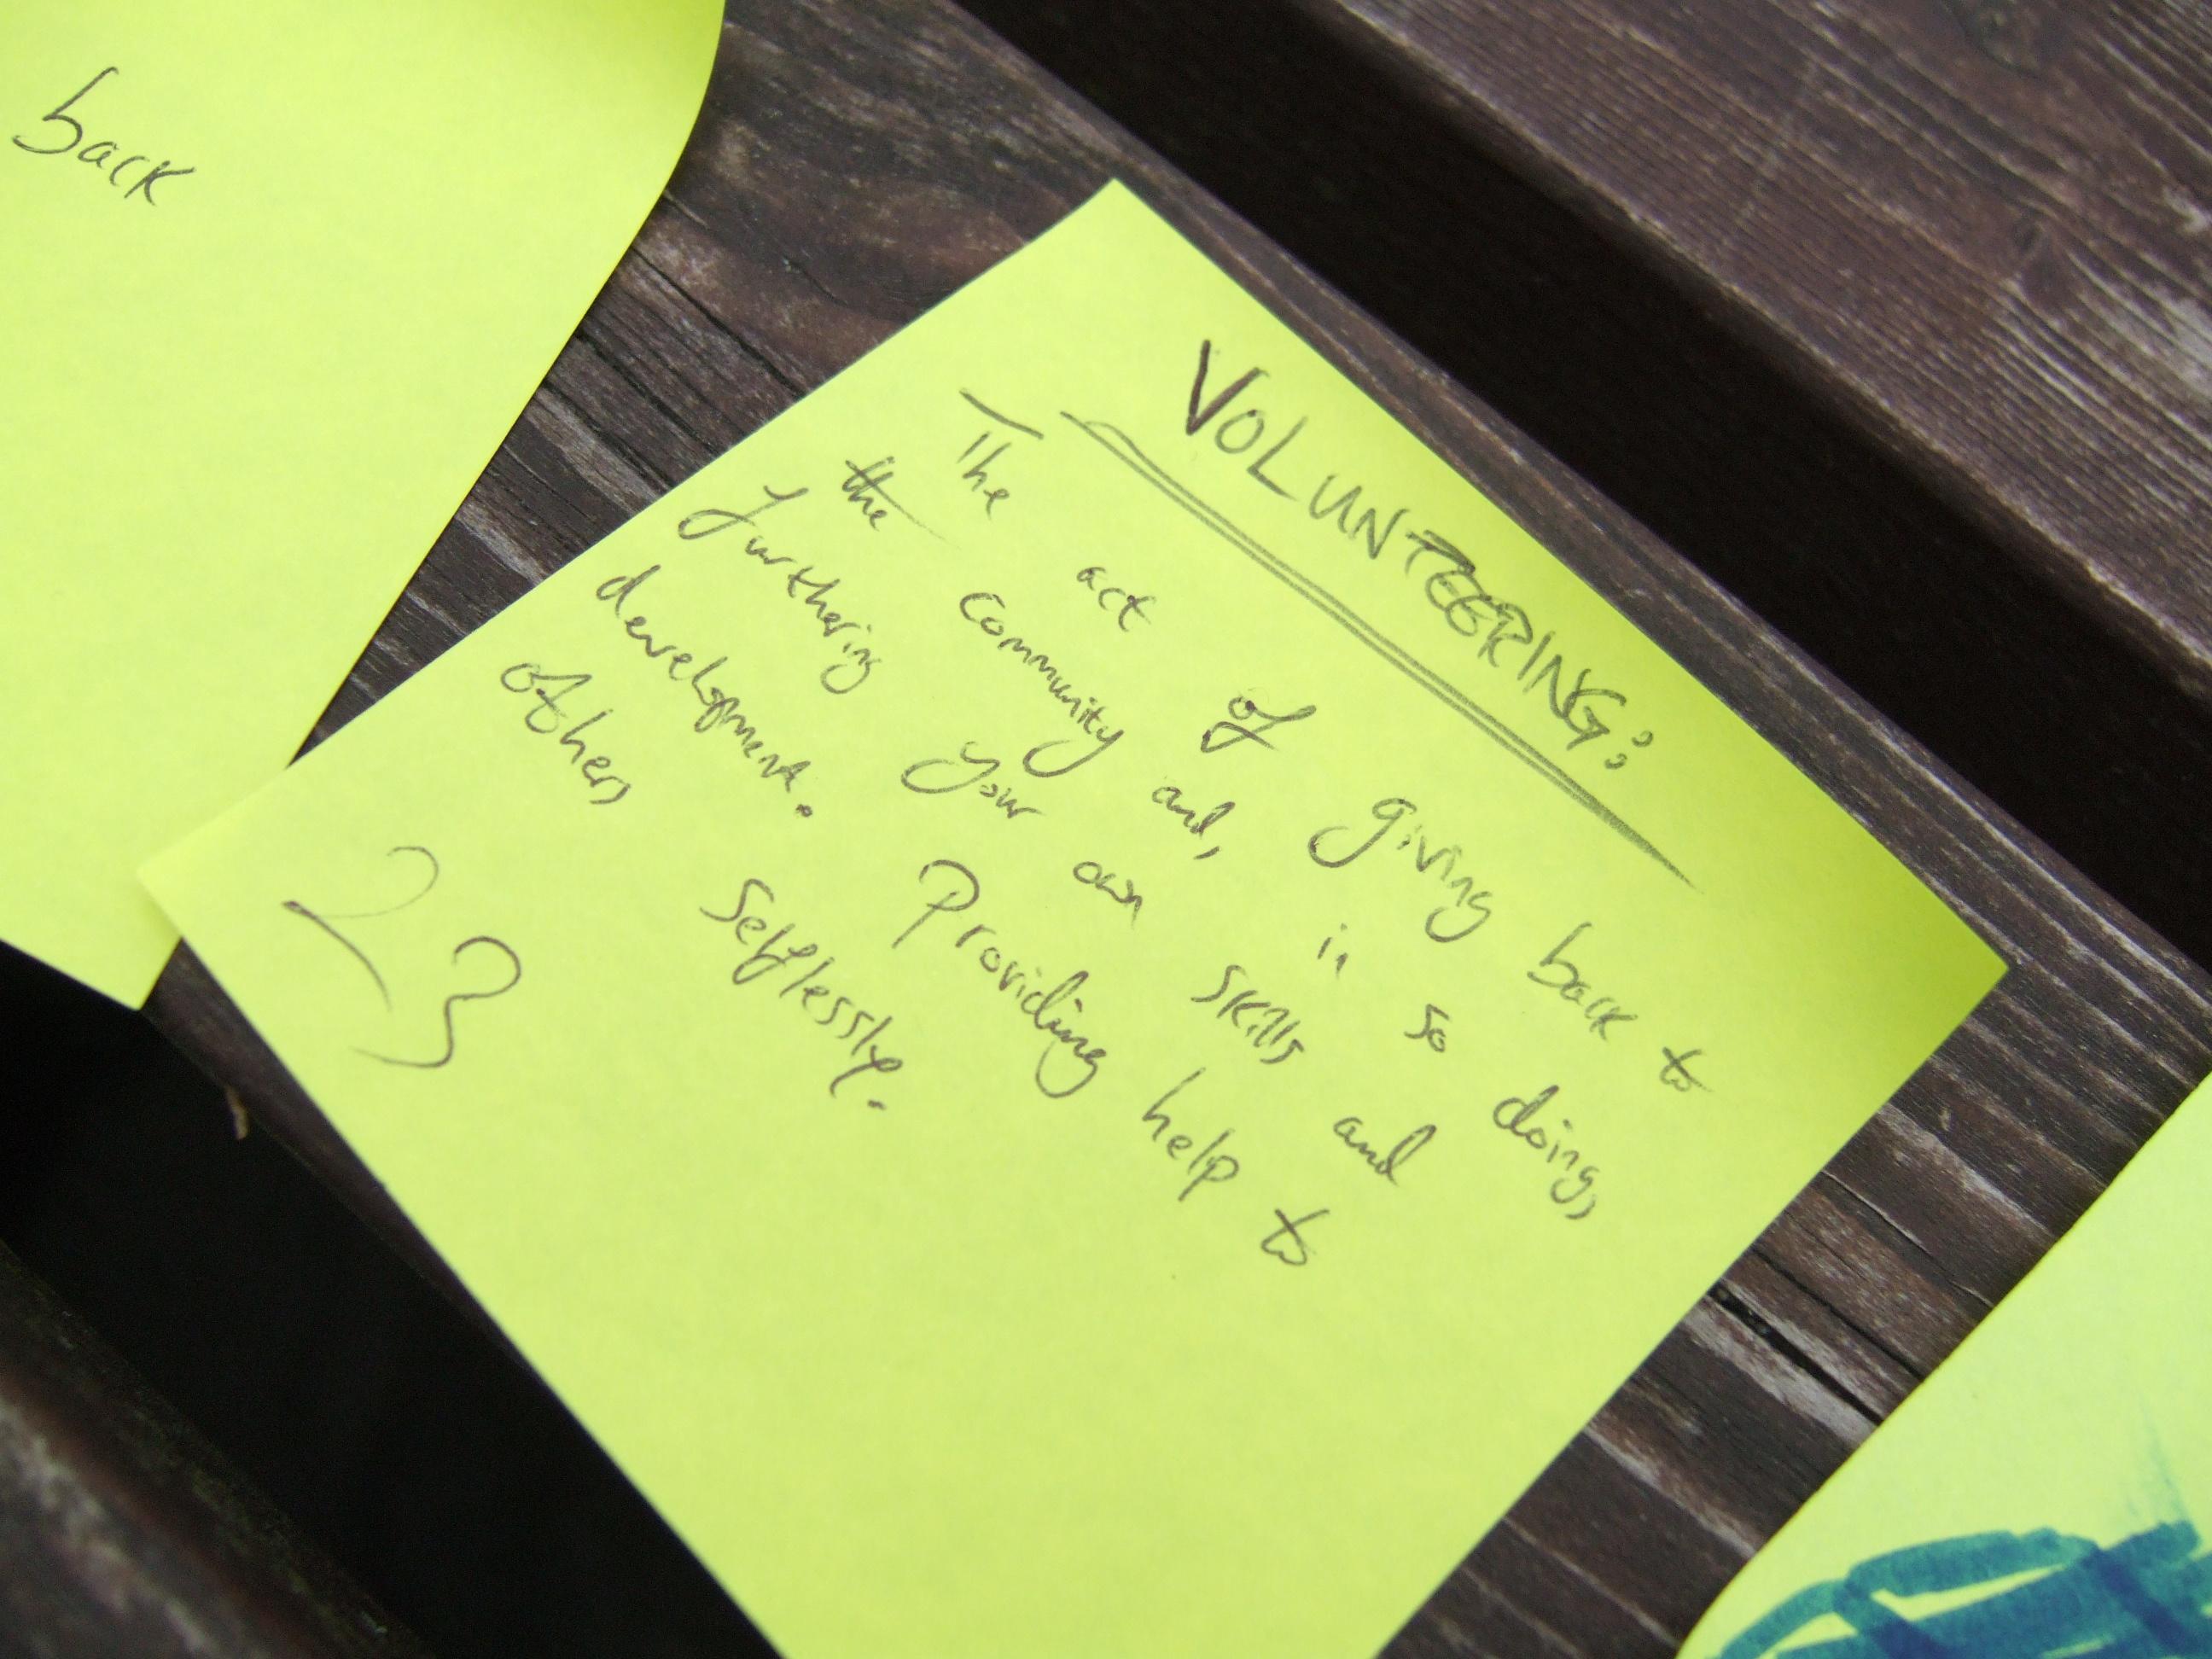 back
VOLUNTEERING:
The act of giving back to
the community and, in so doing,
furthering your own skills and
development. Providing help to
others selflessly.
23